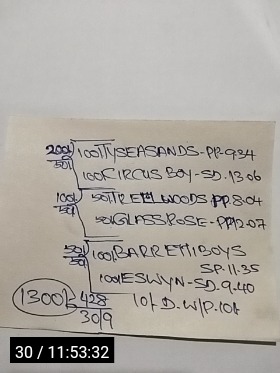 200/- 100TTYSEASANDS-PP-934
50/- 100CIRCUS BOY-SD.1306
100/- 50TTRELLWOODS PP.8-04
50/- 50GLASSPOSE-PP12-07
50/- 100BARRETTIBOYS
50/- SP.11.35
100ESWYN-SD.9.40
10/- D.W/P.10/-
1300/- 428
3019
30 / 11:53:32